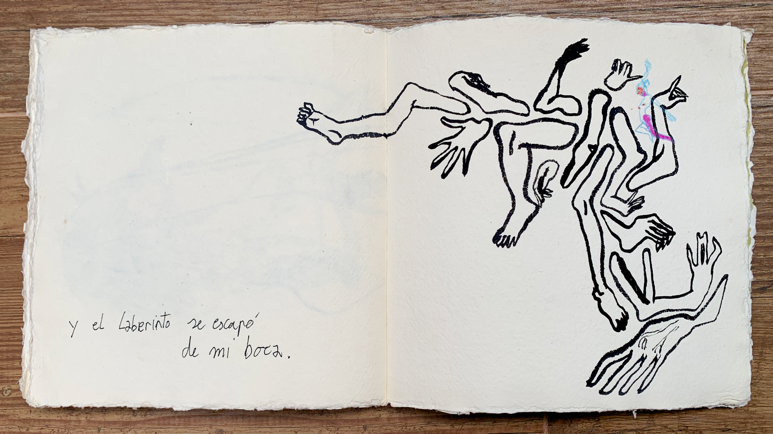 y el Laberinto se escapó
de mi boca.